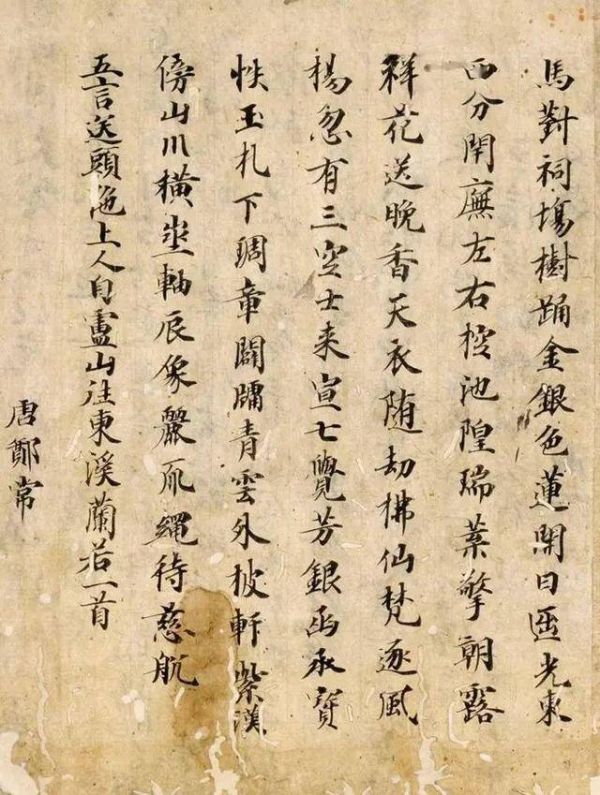 馬對祠塲樹踊金銀色蓮開日𠥱光東
西分閈廡左右控池隍瑞葉擎朝露
祥花送晚香天衣随劫拂仙梵逐風
揚忽有三空士来宣七覺芳銀函承寶
帙玉札下琱章闢牖青雲外披軒紫漢
傍山川横埊軸辰象麗𠀑縄待慈航
五言送頭陁上人自廬山往東溪蘭若一首
唐鄭常